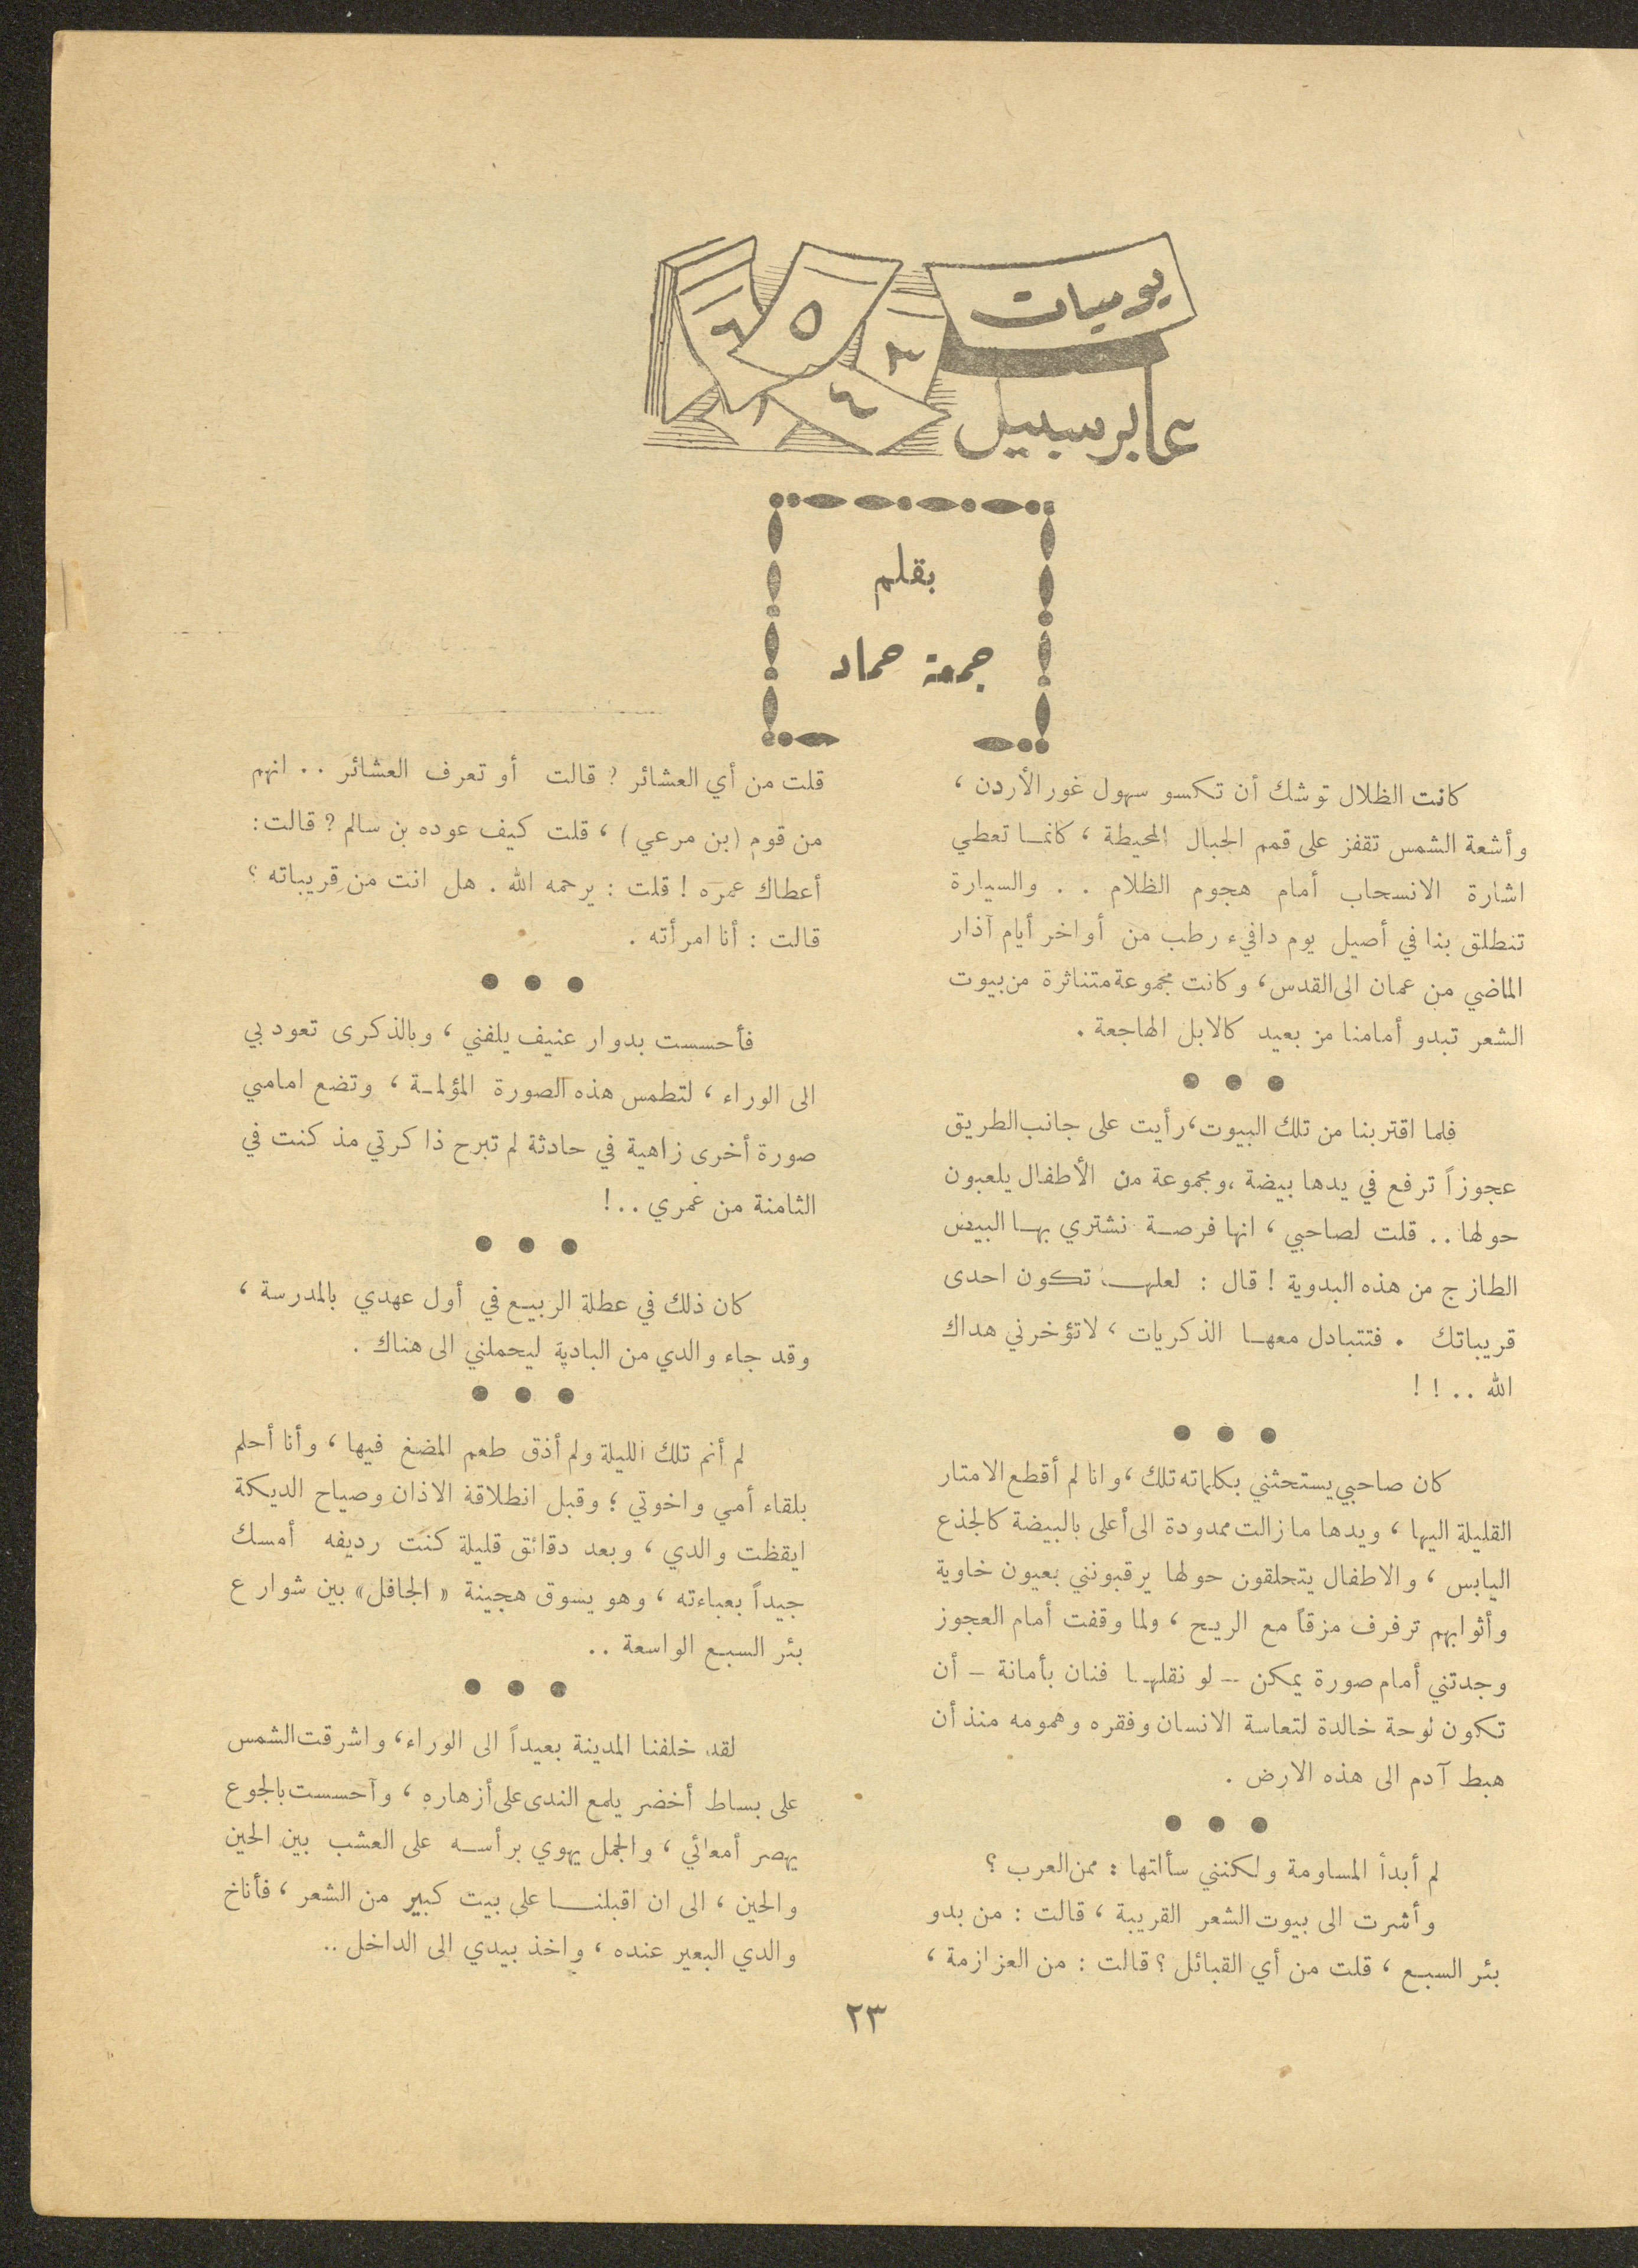 يوميات
عابر سبيل
٦ ٥ ٣ ٤ ١
بقلم
جمعة حماد
كانت الظلال توشك أن تكسو سهول غور الأردن ،
وأشعة الشمس تقفز على قمم الجبال المحيطة ، كانمـا تعطي
اشارة الانسحاب أمام هجوم الظلام . . والسيارة
تنطلق بنا في أصيل يوم دافيء رطب من أواخر أيام آذار
الماضي من عمان الى القدس ، وكانت مجموعة متناثرة من بيوت
الشعر تبدو أمامنا من بعيد كالابل الهاجعة .
● ● ●
فلما اقتربنا من تلك البيوت ، رأيت على جانب الطريق
عجوزاً ترفع في يدها بيضة ، ومجموعة من الأطفال يلعبون
حولها . . قلت لصاحبي ، انها فرصـة نشتري بهـا البيض
الطازج من هذه البدوية ! قال : لعلهـا تكون احدى
قريباتك . فتتبادل معهـا الذكريات ، لا تؤخرني هداك
الله . . ! !
● ● ●
كان صاحبي يستحثني بكلماته تلك ، وانا لم أقطع الامتار
القليلة اليها ، ويدها ما زالت ممدودة الى أعلى بالبيضة كالجذع
اليابس ، والاطفال يتحلقون حولها يرقبونني بعيون خاوية
وأثوابهم ترفرف مزقاً مع الريح ، ولما وقفت أمام العجوز
وجدتني أمام صورة يمكن – لو نقلهـا فنان بأمانة – أن
تكون لوحة خالدة لتعاسة الانسان وفقره وهمومه منذ أن
هبط آدم الى هذه الارض .
● ● ●
لم أبدأ المساومة ولكنني سألتها : ممن العرب ؟
وأشرت الى بيوت الشعر القريبة ، قالت : من بدو
بئر السبع ، قلت من أي القبائل ؟ قالت : من العزازمة ،
قلت من أي العشائر ? قالت أو تعرف العشائر . . انهم
من قوم ( بن مرعي ) ، قلت كيف عوده بن سالم ? قالت :
أعطاك عمره ! قلت : يرحمه الله . هل انت من قريباته ؟
قالت : أنا امرأته .
● ● ●
فأحسست بدوار عنيف يلفني ، وبالذكرى تعود بي
الى الوراء ، لتطمس هذه الصورة المؤلمـة ، وتضع امامي
صورة أخرى زاهية في حادثة لم تبرح ذاكرتي مذ كنت في
الثامنة من عمري . . !
● ● ●
كان ذلك في عطلة الربيـع في أول عهدي بالمدرسة ،
وقد جاء والدي من البادية ليحملني الى هناك .
● ● ●
لم أنم تلك الليلة ولم أذق طعم المضغ فيها ، وأنا أحلم
بلقاء أمي واخوتي ؛ وقبل انطلاقة الاذان وصياح الديكة
ايقظت والدي ، وبعد دقائق قليلة كنت رديفه أمسك
جيداً بعباءته ، وهو يسوق هجينة « الجافل » بين شوارع
بئر السبـع الواسعة . .
● ● ●
لقد خلفنا المدينة بعيداً الى الوراء ، واشرقت الشمس
على بساط أخضر يلمع الندى على أزهاره ، وأحسست بالجوع
يهصر أمعائي ، والجمل يهوي برأسـه على العشب بين الحين
والحين ، الى ان اقبلنـا على بيت كبير من الشعر ، فأناخ
والدي البعير عنده ، واخذ بيدي الى الداخل . .
٢٣